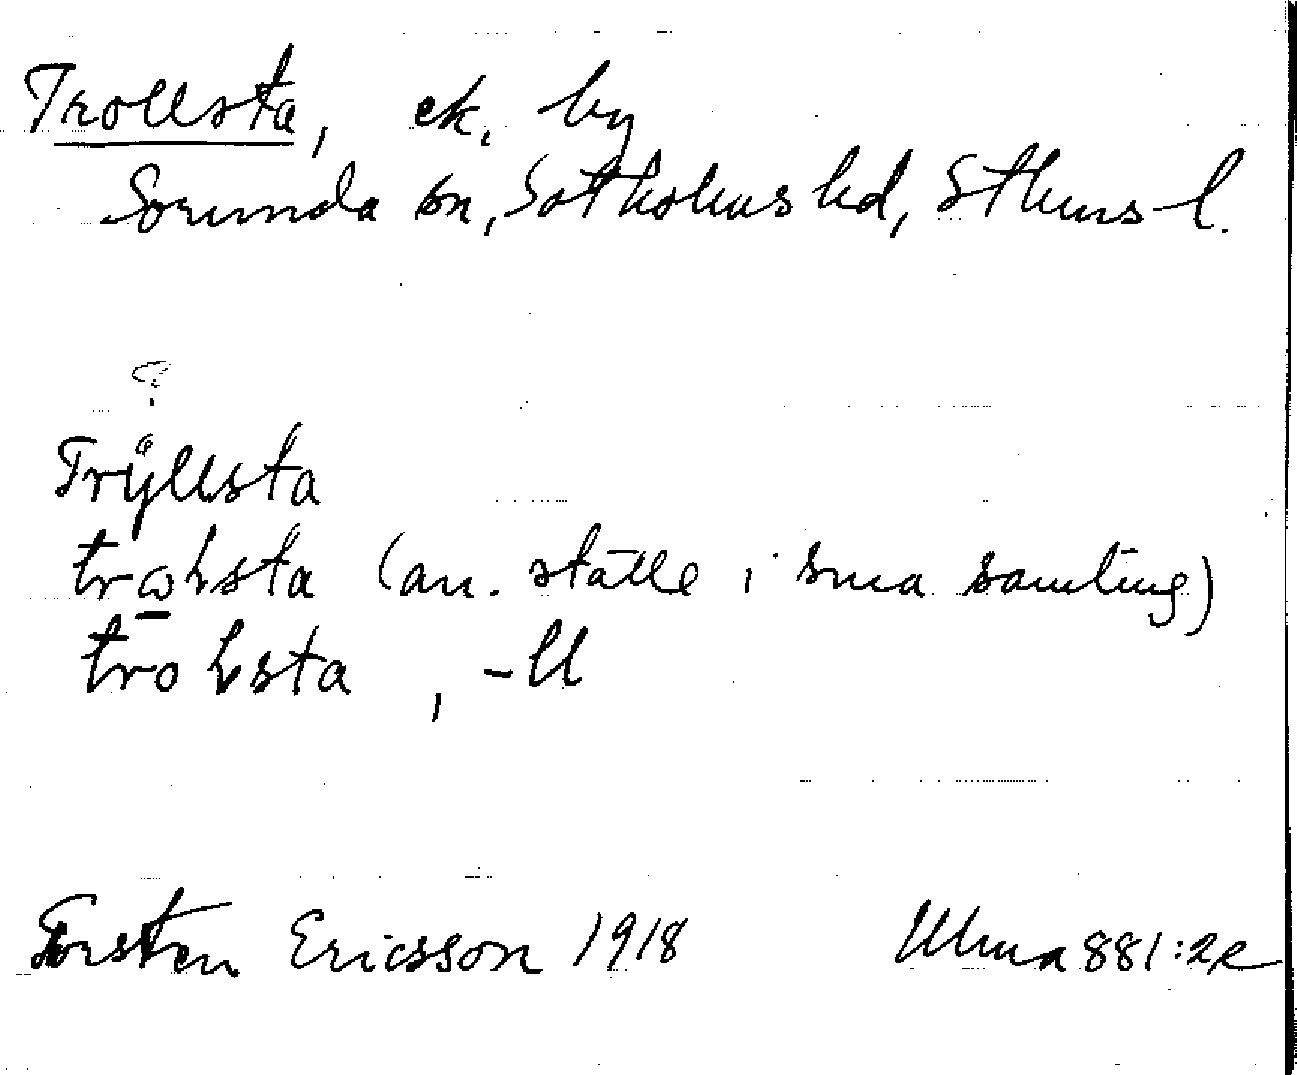 Trollsta, ek. by
Sorunda sn, Sotholms hd, Sthms l.
?
Trÿllsta
trωlsta (an. ställe i sma samling)
trolsta, -ll
Torsten Ericsson 1918 Ulma 881:2